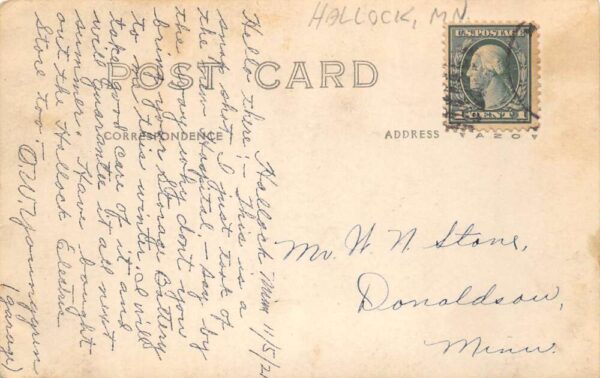 HALLOCK, MN
U.S. POSTAGE
1 CENT 1
POST CARD
CORRESPONDENCE
ADDRESS
AZO
Hallock Minn 11/5/2
Hello there! - This is a
snap shot I just took of
the Hospital. - say by
the way why don't you
bring your Storage Battery
to me this winter. I will
take good care of it and
will guarantee it all next
summer. Have bought
out the Hallock Electric
Store too.
O.W. Younggren
(garage)
Mr. W. N. Stone,
Donaldson,
Minn.